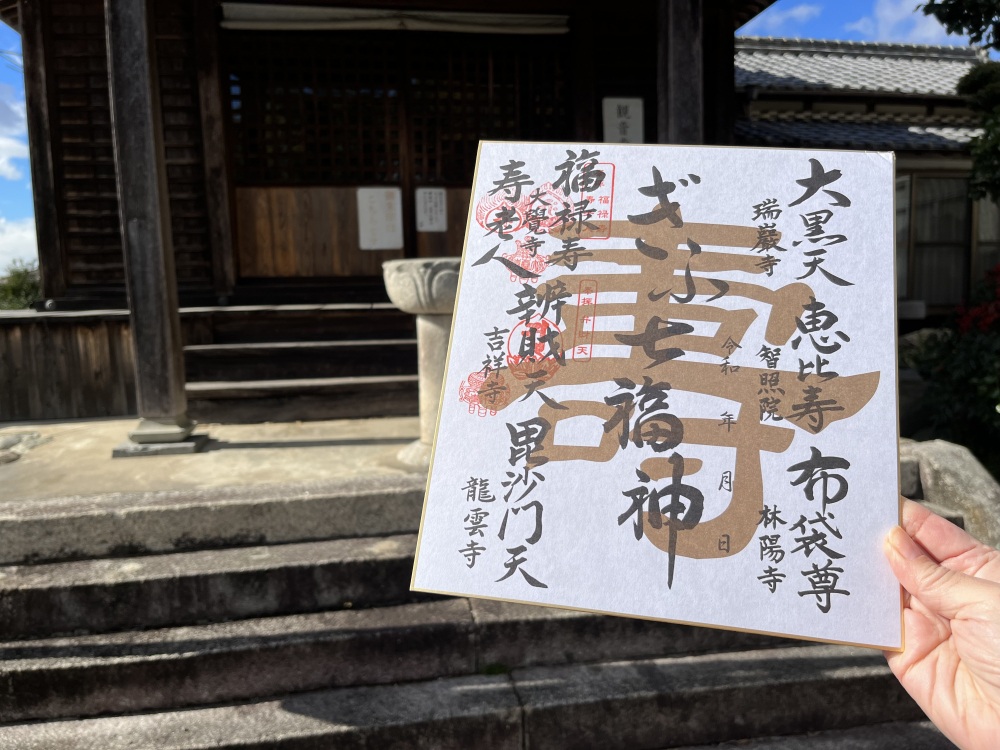 大黒天
瑞巖寺
恵比寿
智照院
布袋尊
林陽寺
令和 年 月 日
ぎふ七福神
寿
福禄寿
大覺寺
寿老人
辨賊天
吉祥寺
毘沙门天
龍雲寺
福禄
観音